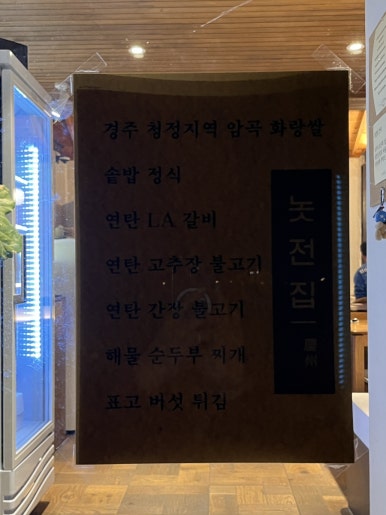 경주 청정지역 암곡 화랑쌀
솥밥 정식
연탄 LA 갈비
연탄 고추장 불고기
연탄 간장 불고기
해물 순두부 찌개
표고 버섯 튀김
놋전집
慶州